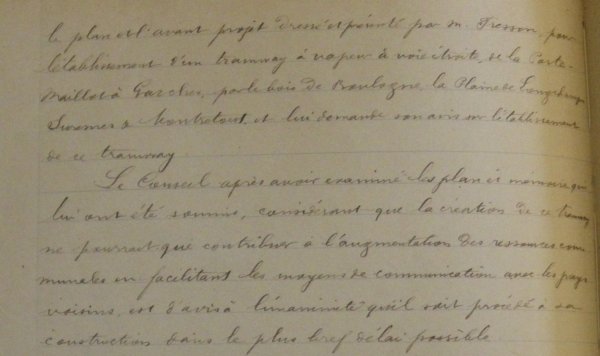 le plan et l'avant projet dressé et présenté par M. Tresson, pour
l'établissement d'un tramway à vapeur à voie étroite, de la Porte
Maillot à Garches, par le bois de Boulogne, la Plaine de Longchamp
Suresnes & Montretout, et lui demande son avis sur l'établissement
de ce tramway
Le Conseil après avoir examiné les plan et mémoire qui
lui ont été soumis, considérant que la création de ce tramway
ne pourrait que contribuer à l'augmentation des ressources com
munales en facilitant les moyens de communication avec les pays
voisins, est d'avis à l'unanimité qu'il soit procédé à sa
construction dans le plus bref délai possible.